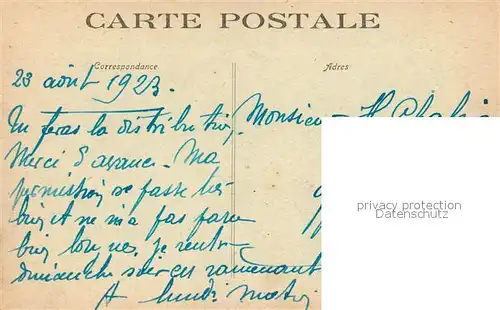 CARTE POSTALE
Correspondance
Adres
23 août 1923.
Tu feras la distribution
Monsieur H
Merci d'avance. Ma
permission se passe très
bien et ne m'a pas paru
bien longue. je rentre
dimanche soir en ramenant
A lundi matin
privacy protection
Datenschutz